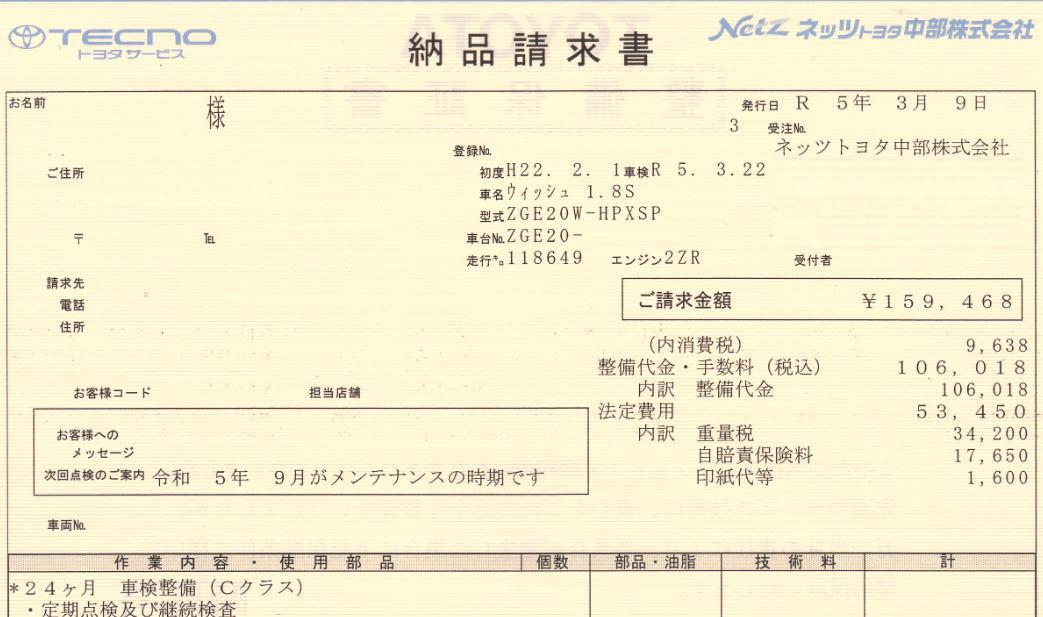 TECNO
トヨタサービス
納品請求書
Netz ネッツトヨタ中部株式会社
お名前 様
発行日 R 5年 3月 9日
3 受注№
ネッツトヨタ中部株式会社
登録№
ご住所
初度H22. 2. 1車検R 5. 3.22
車名ウィッシュ 1.8S
型式ZGE20W-HPXSP
〒 ℡
車台№ZGE20-
走行㌔118649 エンジン2ZR 受付者
請求先
電話
住所
ご請求金額 ¥159,468
(内消費税) 9,638
整備代金・手数料(税込) 106,018
内訳 整備代金 106,018
お客様コード 担当店舗
法定費用 53,450
内訳 重量税 34,200
自賠責保険料 17,650
印紙代等 1,600
お客様への
メッセージ
次回点検のご案内 令和 5年 9月がメンテナンスの時期です
車両№
作業内容・使用部品 個数 部品・油脂 技術料 計
*24ヶ月 車検整備(Cクラス)
・定期点検及び継続検査